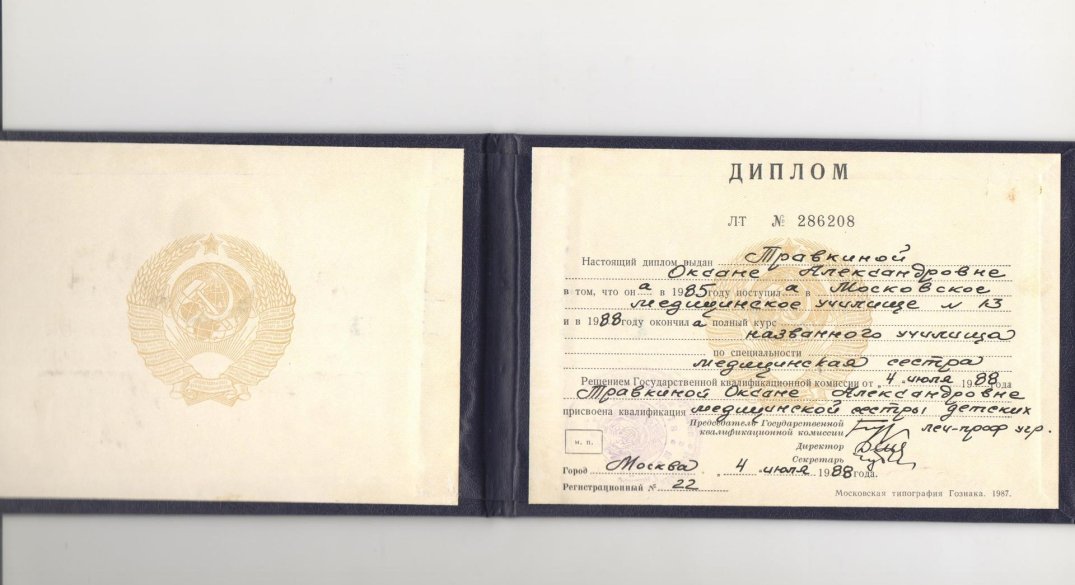 ДИПЛОМ
ЛТ № 286208
Настоящий диплом выдан Травкиной
Оксане Александровне
в том, что он а в 1985 году поступил а в Московское
медицинское училище № 13
и в 1988 году окончил а полный курс
названного училища
по специальности
медицинская сестра
Решением Государственной квалификационной комиссии от „ 4 „ июля 1988 года
Травкиной Оксане Александровне
присвоена квалификация медицинской сестры детских
Председатель Государственной леч-проф учр.
квалификационной комиссии
Директор
м. п.
Секретарь
Город Москва „ 4 „ июля 1988 года.
Регистрационный № 22
Московская типография Гознака. 1987.